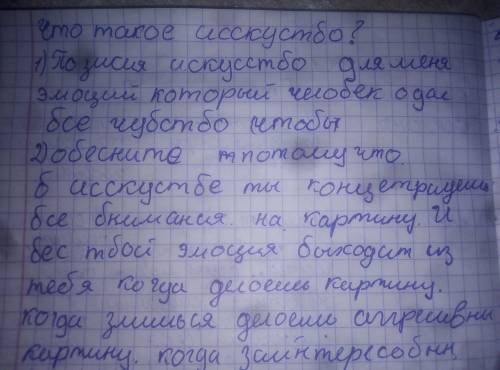 что такое исскуство?
1) Позисия искусство для меня
эмоций который человек одал
все чубство чтобы
2) обесните потому что
в исскустве ты концетрируешь
все внимания на картину. И
вес твой эмоция выходит из
тебя когда делоешь картину.
когда злишься делоешь аггресивны
картину. когда заинтересовын